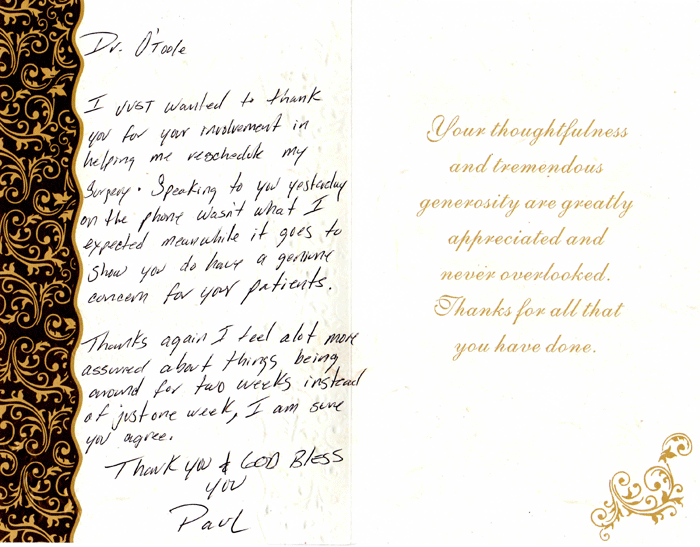 Dr. O'Toole
I JUST wanted to thank
you for your involvement in
helping me reschedule my
surgery. Speaking to you yesterday
on the phone wasn't what I
expected meanwhile it goes to
show you do have a genuine
concern for your patients.
Thanks again I feel alot more
assured about things being
around for two weeks instead
of just one week, I am sure
you agree.
Thank you & GOD Bless
you
Paul
Your thoughtfulness
and tremendous
generosity are greatly
appreciated and
never overlooked.
Thanks for all that
you have done.